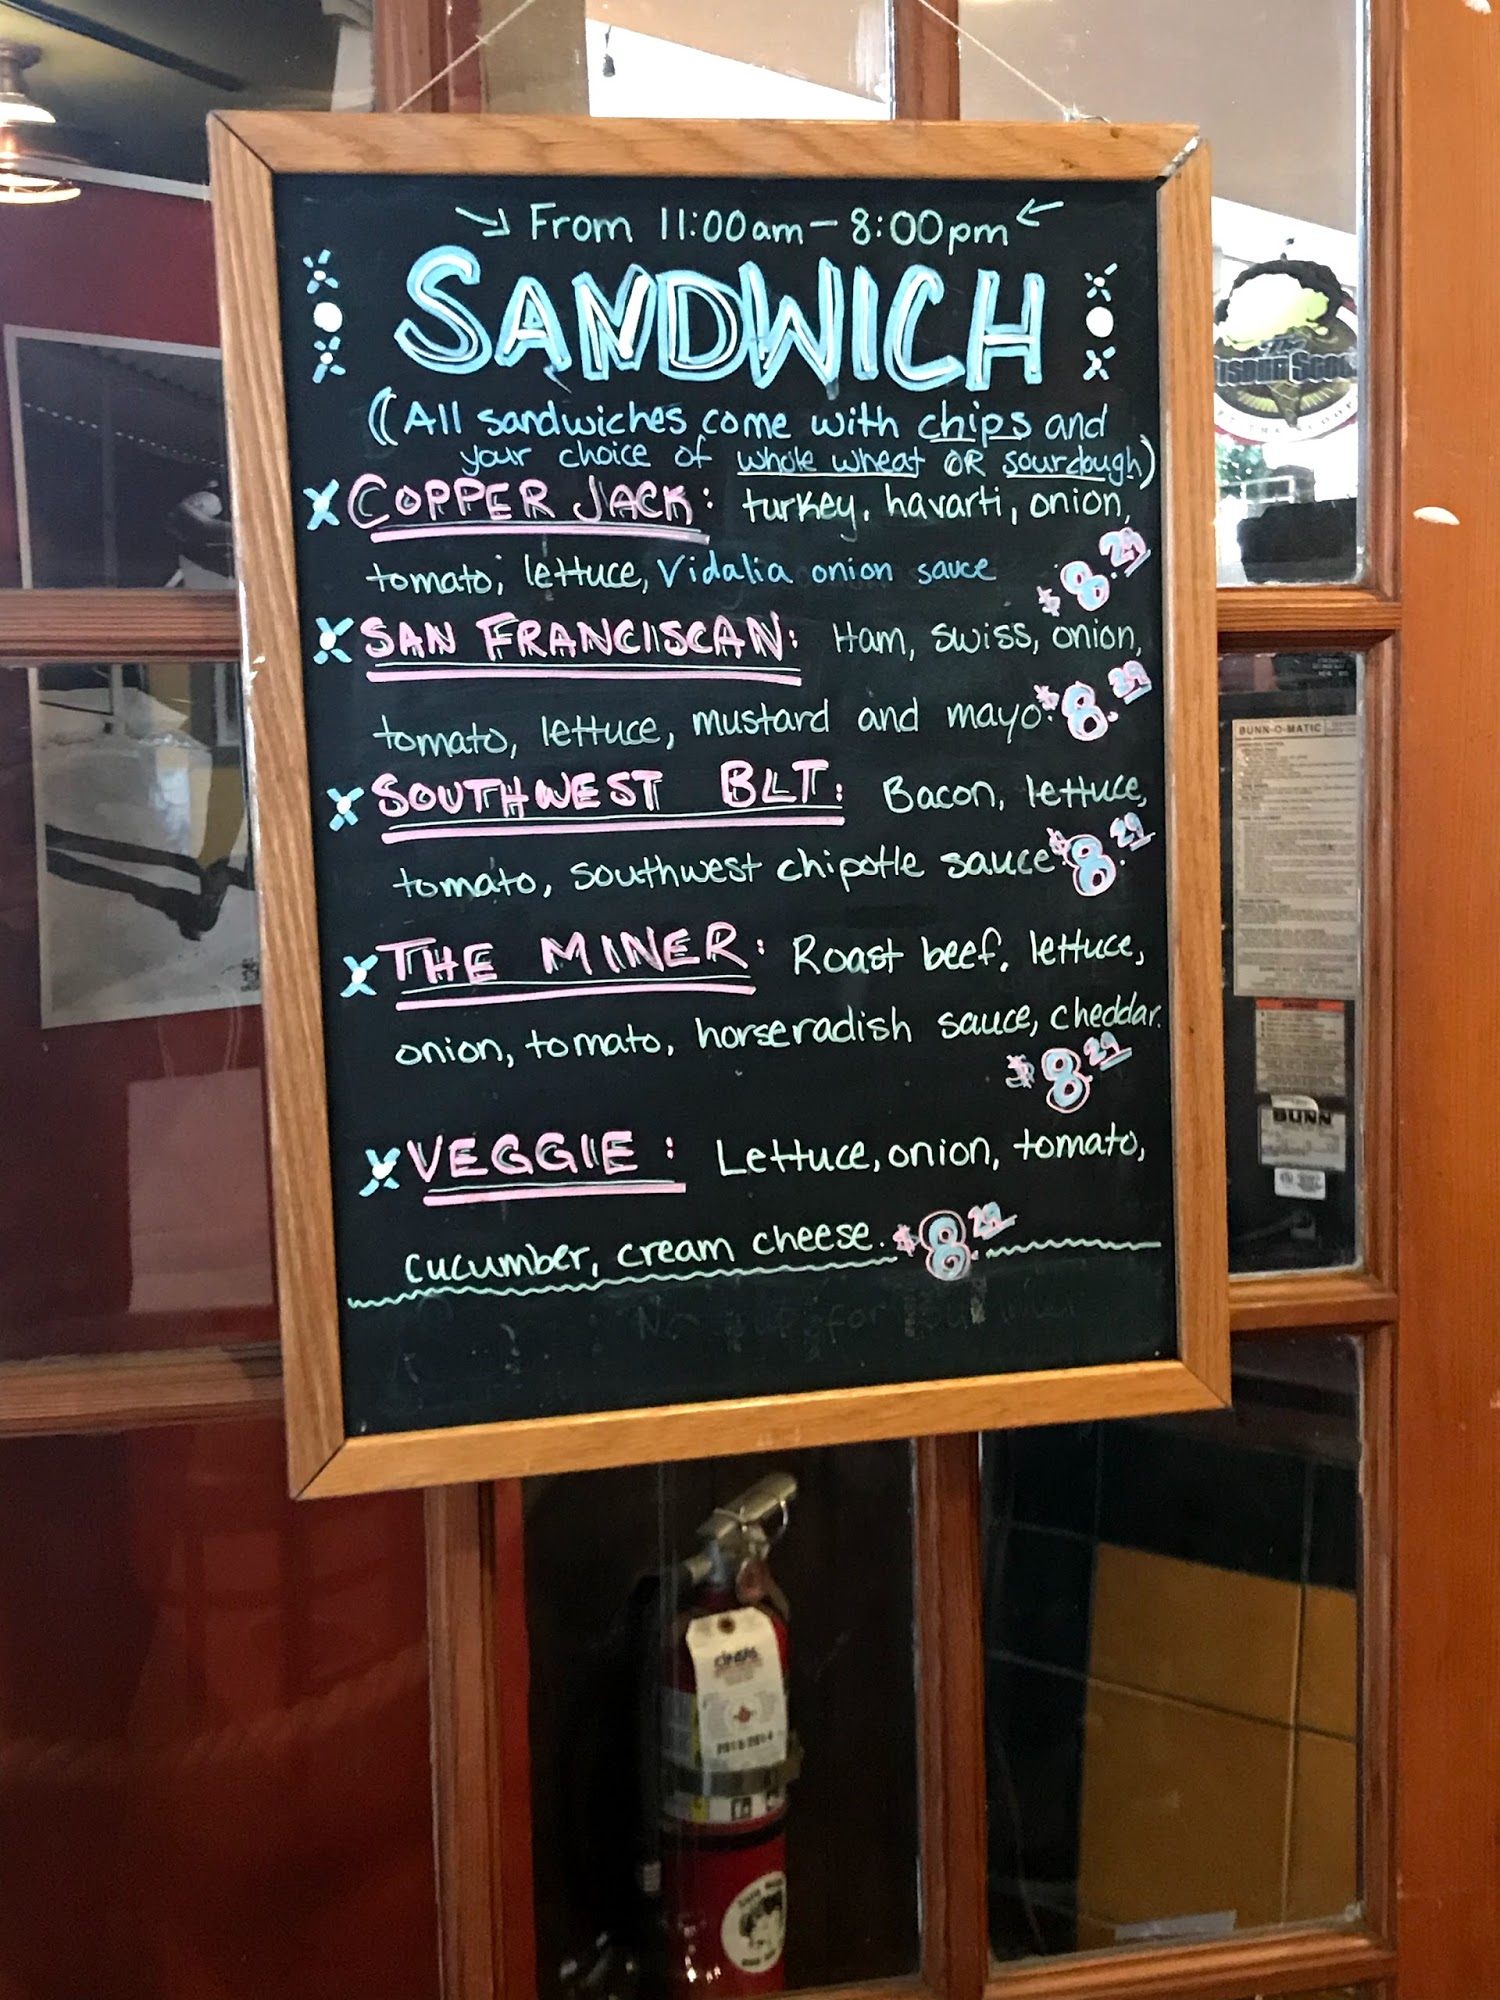 From 11:00am - 8:00pm
SANDWICH
(All sandwiches come with chips and
your choice of whole wheat OR sourdough)
COPPER JACK: turkey, havarti, onion,
tomato, lettuce, Vidalia onion sauce $8.29
SAN FRANCISCAN: Ham, swiss, onion,
tomato, lettuce, mustard and mayo. $8.29
SOUTHWEST BLT: Bacon, lettuce,
tomato, southwest chipotle sauce $8.29
THE MINER: Roast beef, lettuce,
onion, tomato, horseradish sauce, cheddar.
$8.29
VEGGIE: Lettuce, onion, tomato,
cucumber, cream cheese. $8.29
BUNN-O-MATIC
BUNN